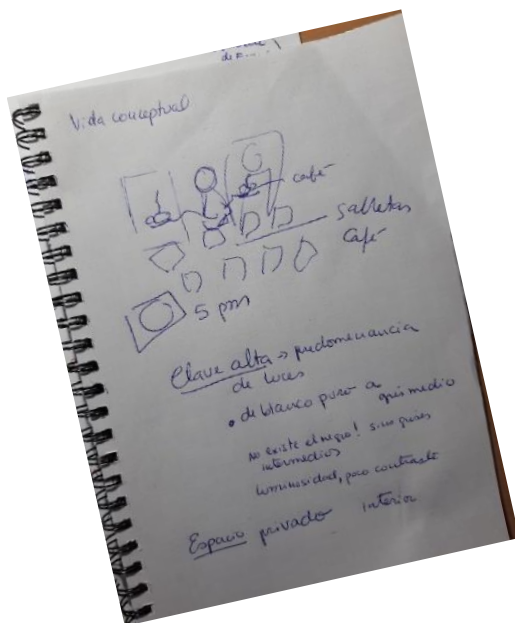 de
Vida conceptual
café
galletas
café
5 pm
Clave alta → predomenancia
de luces
• de blanco puro a gris medio
No existe el negro! sino grises
intermedios
luminosidad, poco contraste
Espacio privado interior